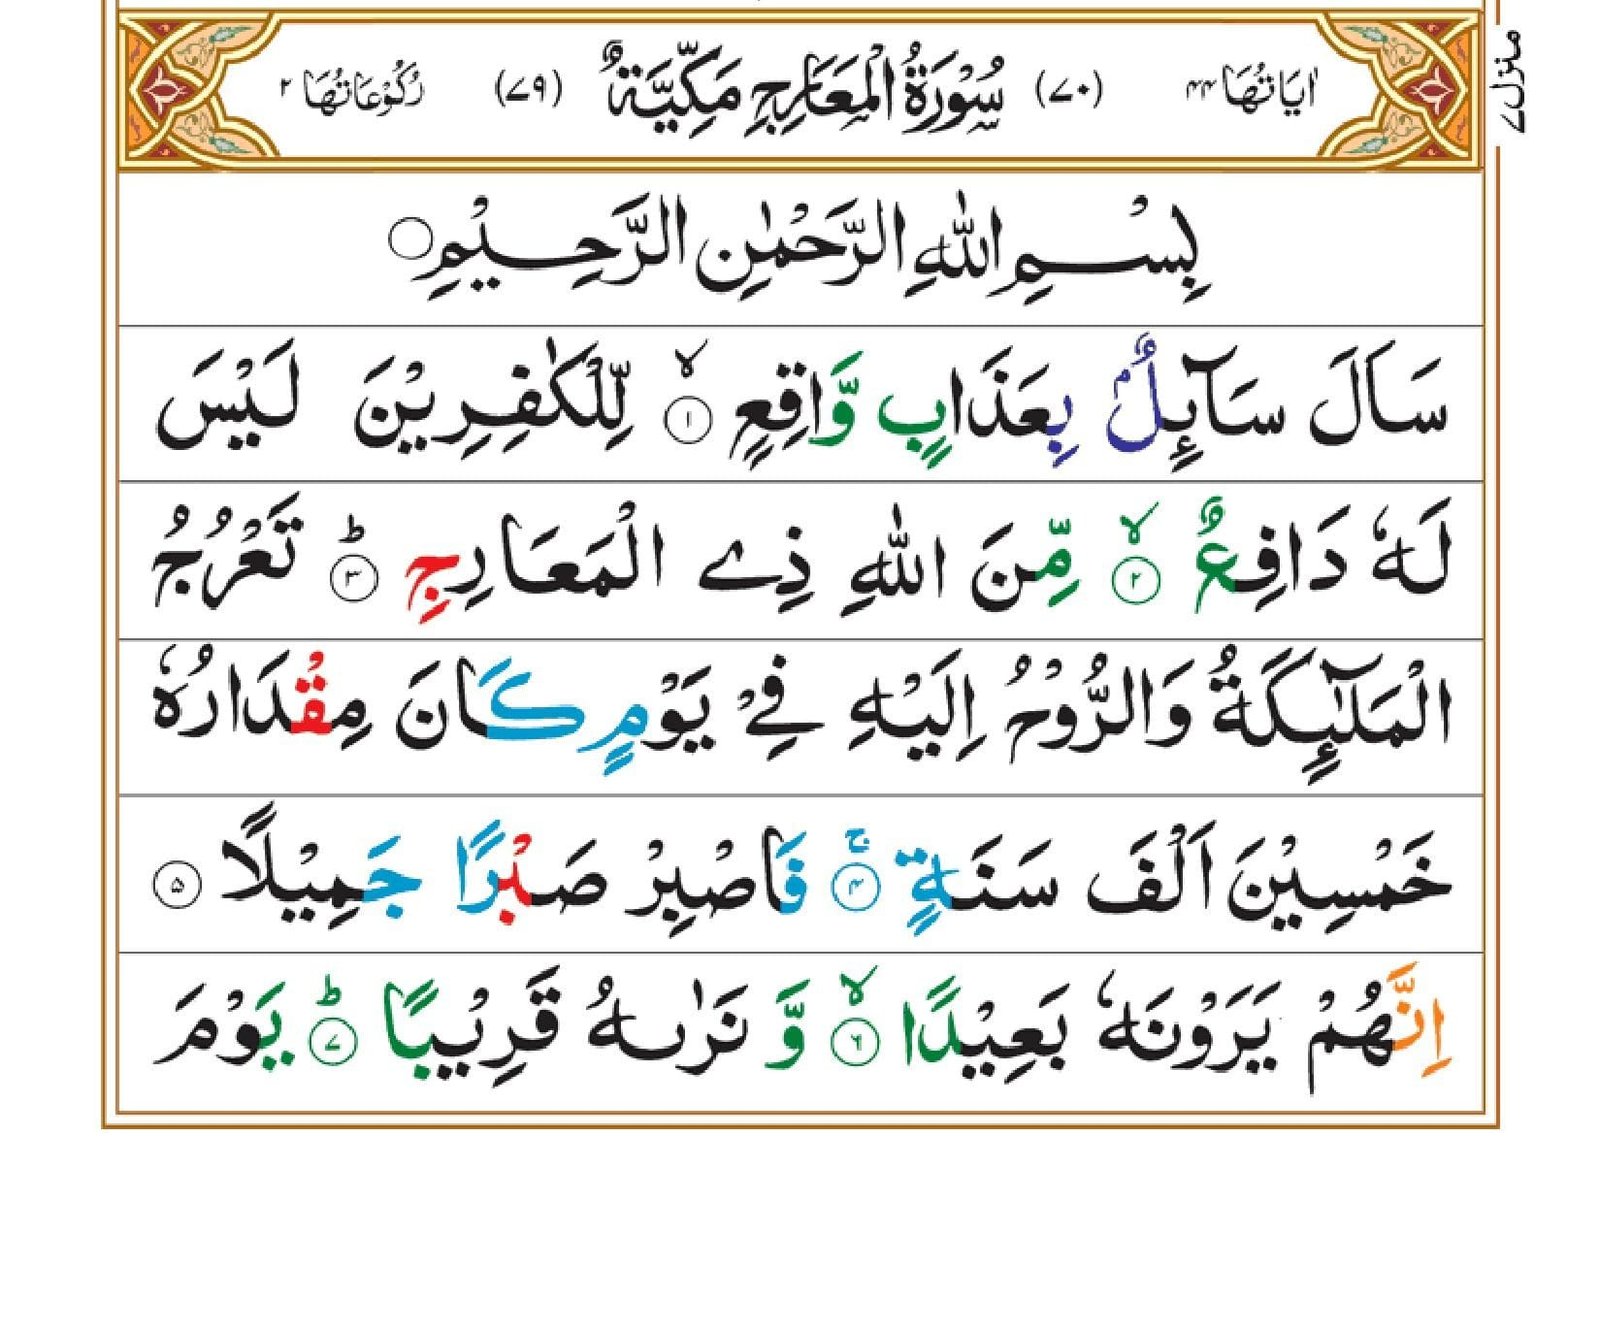 اٰيَاتُهَا ٤٤ (٧٠) سُوْرَةُ الْمَعَارِجِ مَكِّيَّةٌ (٧٩) رُكُوْعَاتُهَا ٢
منزل ٧
بِسْمِ اللّٰهِ الرَّحْمٰنِ الرَّحِيْمِ ۝
سَاَلَ سَآئِلٌۢ بِعَذَابٍ وَّاقِعٍ ۙ‏﴿۱﴾ لِّلْكٰفِرِيْنَ لَيْسَ
لَهٗ دَافِعٌ ۙ‏﴿۲﴾ مِّنَ اللّٰهِ ذِى الْمَعَارِجِ ؕ‏﴿۳﴾ تَعْرُجُ
الْمَلٰٓئِكَةُ وَالرُّوْحُ اِلَيْهِ فِىْ يَوْمٍ كَانَ مِقْدَارُهٗ
خَمْسِيْنَ اَلْفَ سَنَةٍ ۚ‏﴿۴﴾ فَاصْبِرْ صَبْرًا جَمِيْلًا ﴿۵﴾
اِنَّهُمْ يَرَوْنَهٗ بَعِيْدًا ۙ‏﴿۶﴾ وَّ نَرٰىهُ قَرِيْبًا ؕ‏﴿۷﴾ يَوْمَ